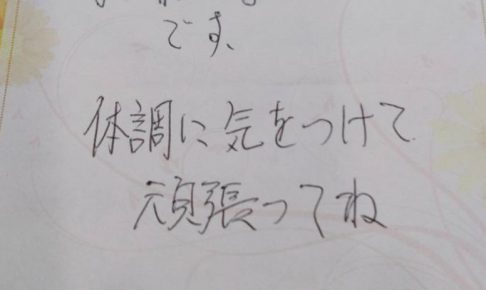 です、
体調に気をつけて
頑張ってね